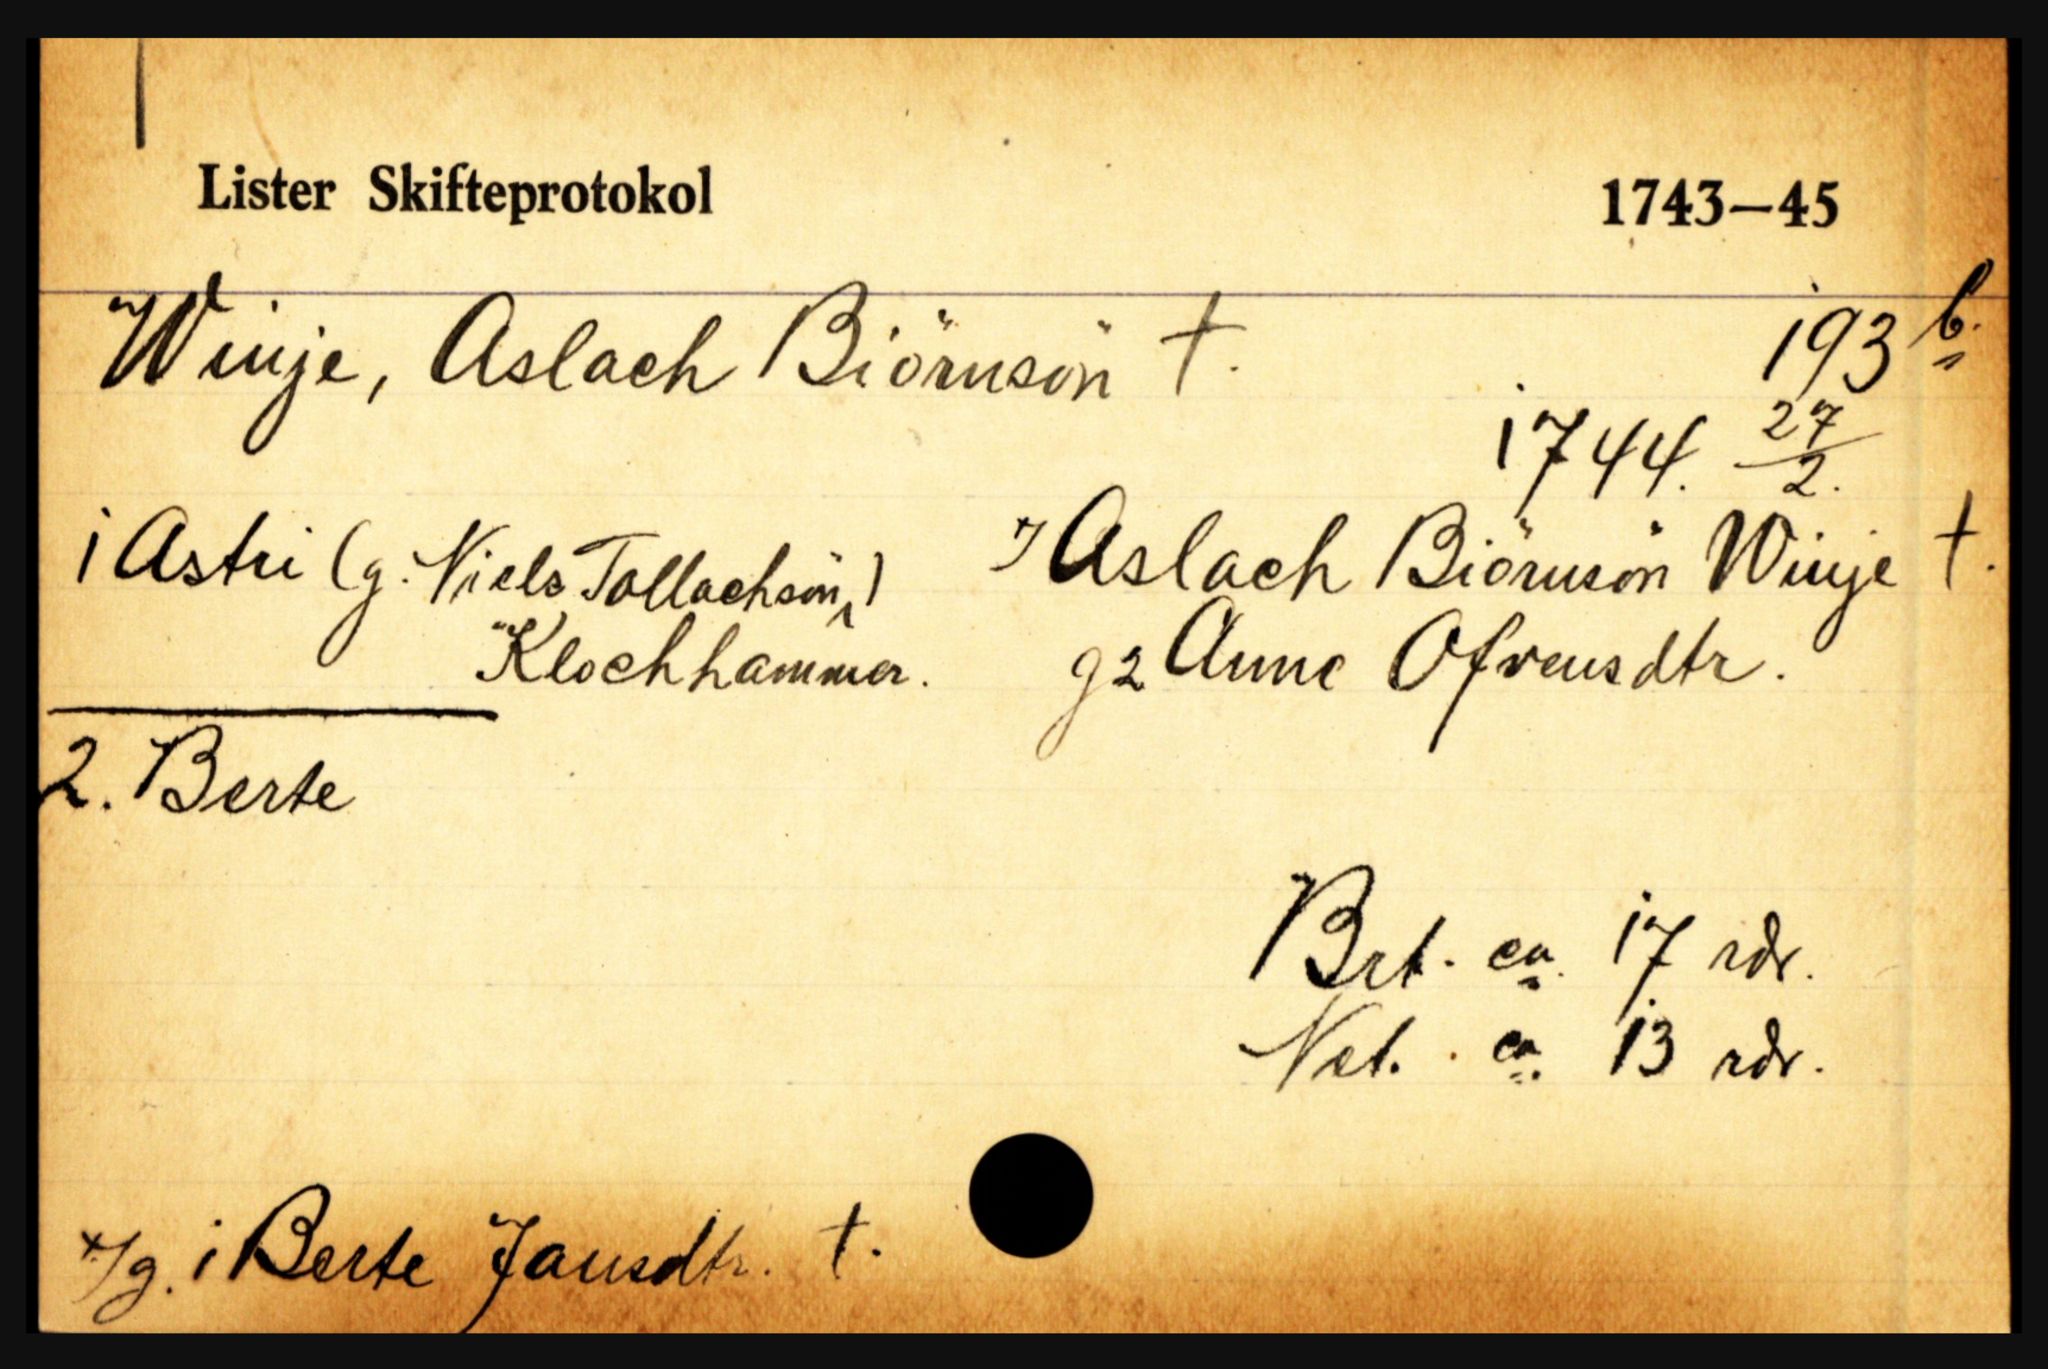 Lister Skifteprotokol 1743—45
Winje, Aslach Biörnsön †. 193 b.
1744. 27/2.
1 Astri (g. Niels Tollachsön,) */ Aslach Biörnsön Winje †.
Klochhammer. g 2 Anne Ofvensdtr.
2. Berte
Brt. ca. 17 rdr.
Net. ca. 13 rdr.
*/ g. 1 Berte Jansdtr. †.